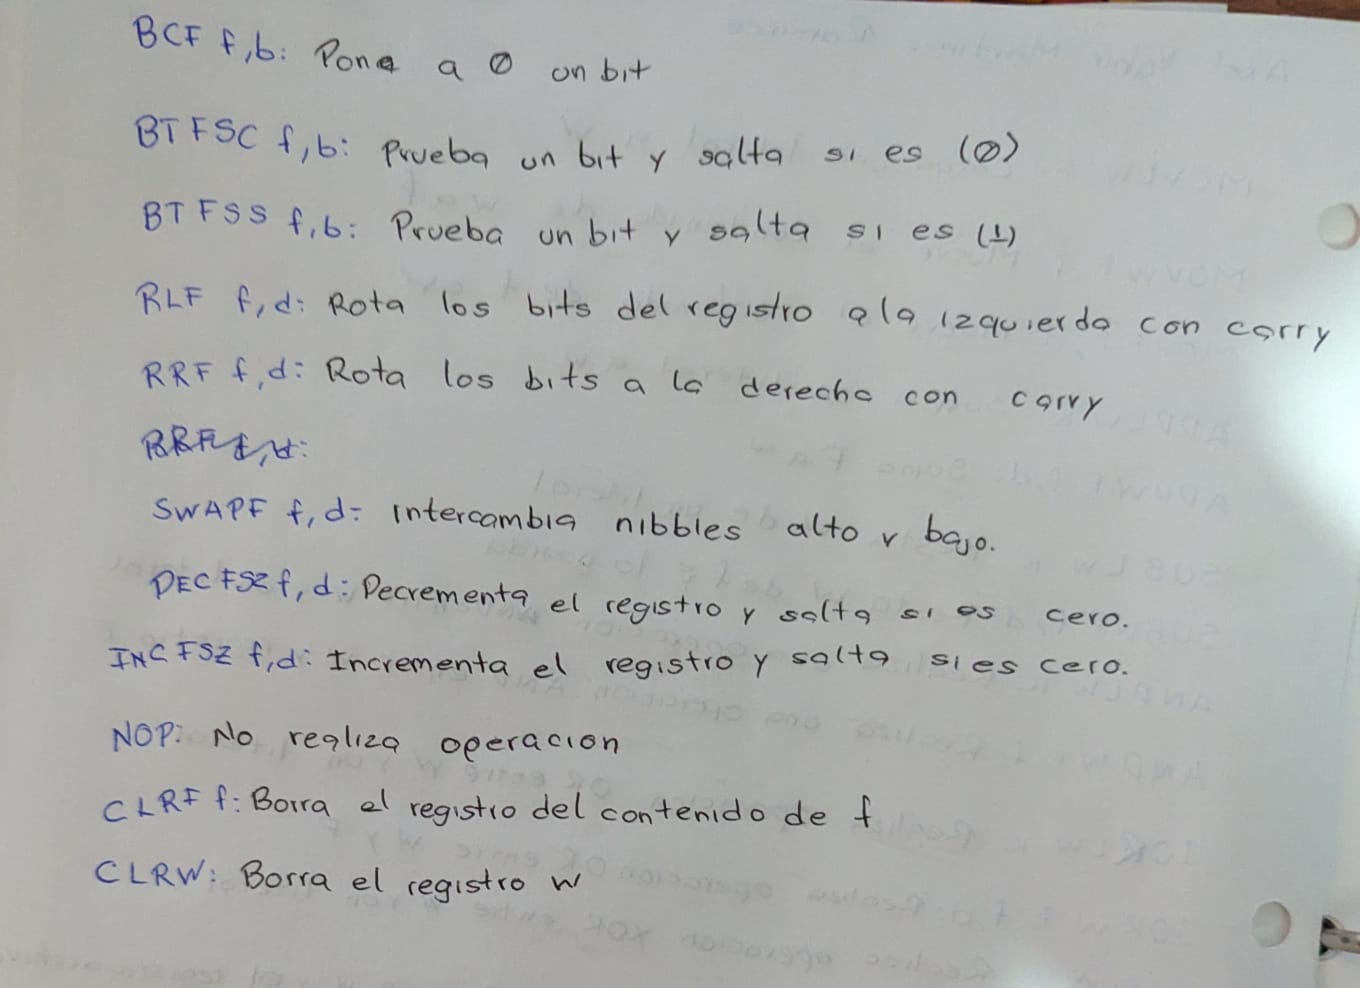 BCF f,b: Pone a 0 un bit
BTFSC f,b: Prueba un bit y salta si es (0)
BTFSS f,b: Prueba un bit y salta si es (1)
RLF f,d: Rota los bits del registro a la izquierda con carry
RRF f,d: Rota los bits a la derecha con carry
SWAPF f,d: intercambia nibbles alto y bajo.
DECFSZ f,d: Decrementa el registro y salta si es cero.
INCFSZ f,d: Incrementa el registro y salta si es cero.
NOP: No realiza operacion
CLRF f: Borra el registro del contenido de f
CLRW: Borra el registro W